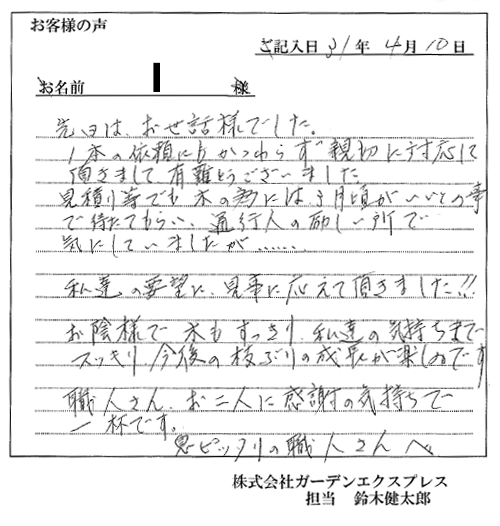 お客様の声
ご記入日 31年 4月 10日
お名前 様
先日は、お世話様でした。
1本の依頼にもかかわらず親切に対応して
頂きまして有難とうございました
見積り等でも木の為には3月頃がいいとの事
で待たてもらい、通行人の励しい所で
気にしていましたが……
私達の要望に、見事に応えて頂きました!!
お陰様で木もすっきり、私達の気持ちまで
スッキリ今後の枝ぶりの成長が楽しみです
職人さん、お二人に感謝の気持ちで
一杯です。
息ピッタリの職人さんへ
株式会社ガーデンエクスプレス
担当 鈴木健太郎